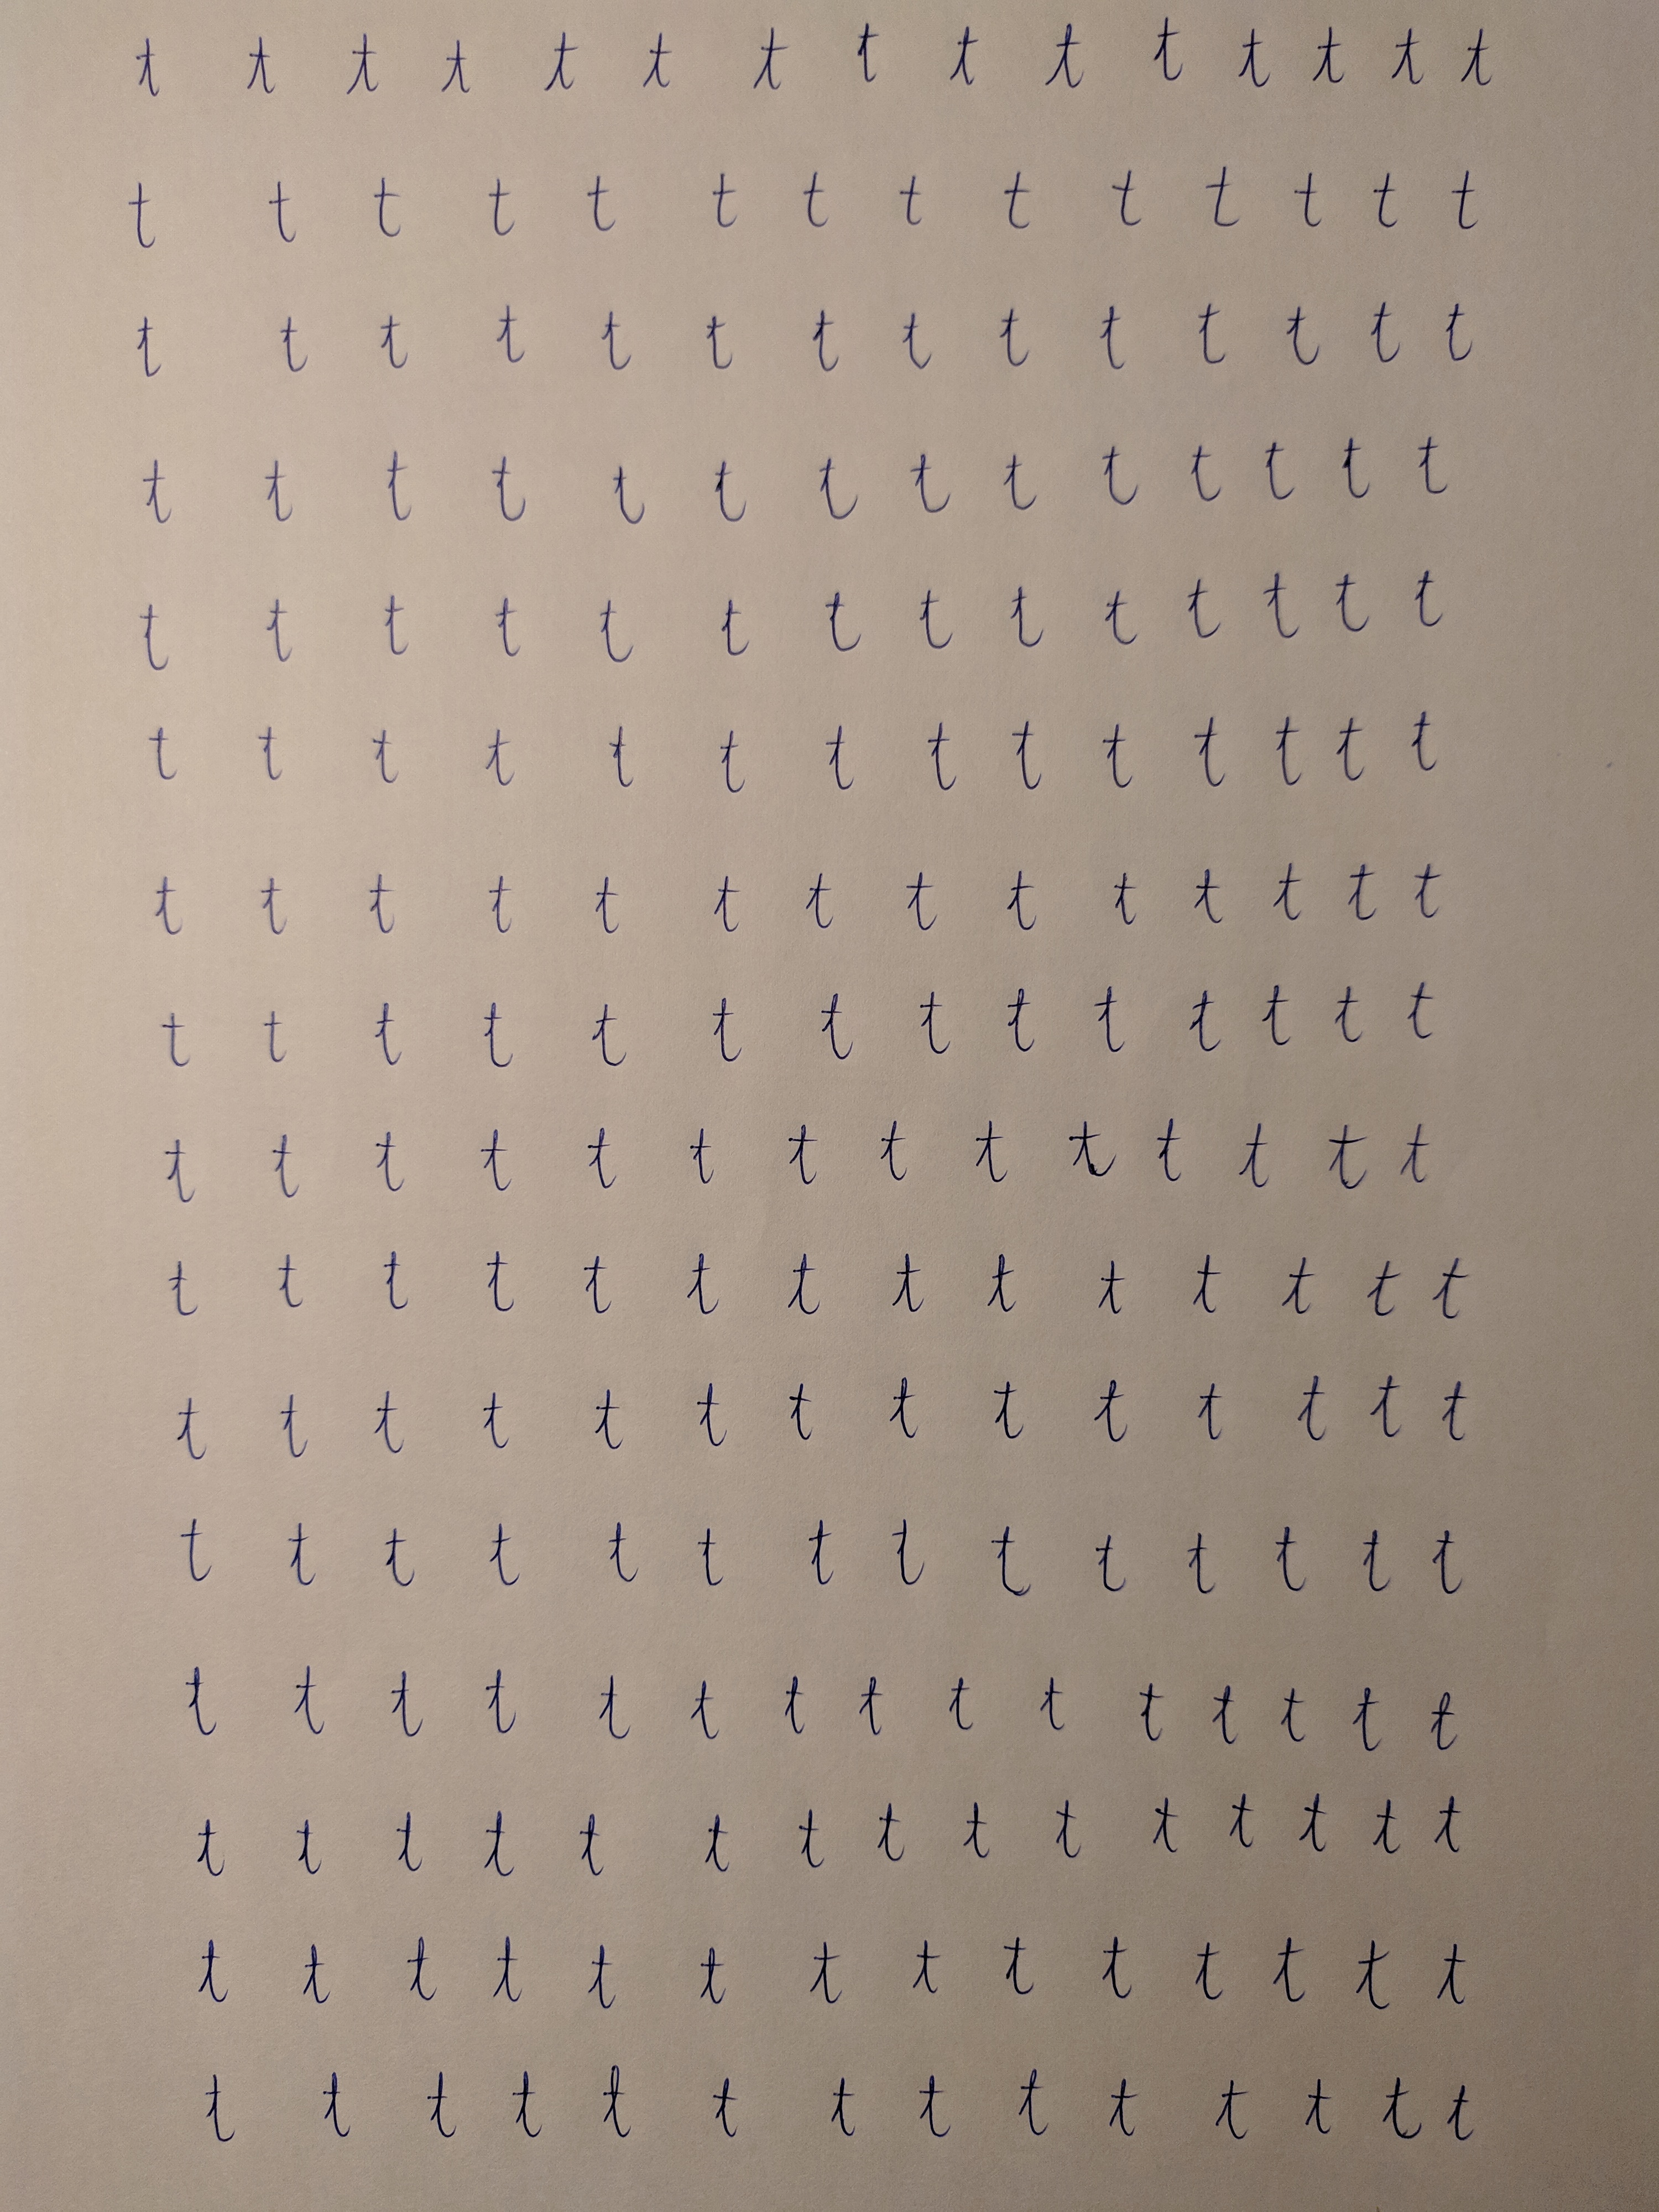 t t t t t t t t t t t t t t t
t t t t t t t t t t t t t t
t t t t t t t t t t t t t t
t t t t t t t t t t t t t t
t t t t t t t t t t t t t t
t t t t t t t t t t t t t t
t t t t t t t t t t t t t t
t t t t t t t t t t t t t t
t t t t t t t t t t t t t t
t t t t t t t t t t t t t t
t t t t t t t t t t t t t t
t t t t t t t t t t t t t t
t t t t t t t t t t t t t t t
t t t t t t t t t t t t t t t
t t t t t t t t t t t t t t
t t t t t t t t t t t t t t